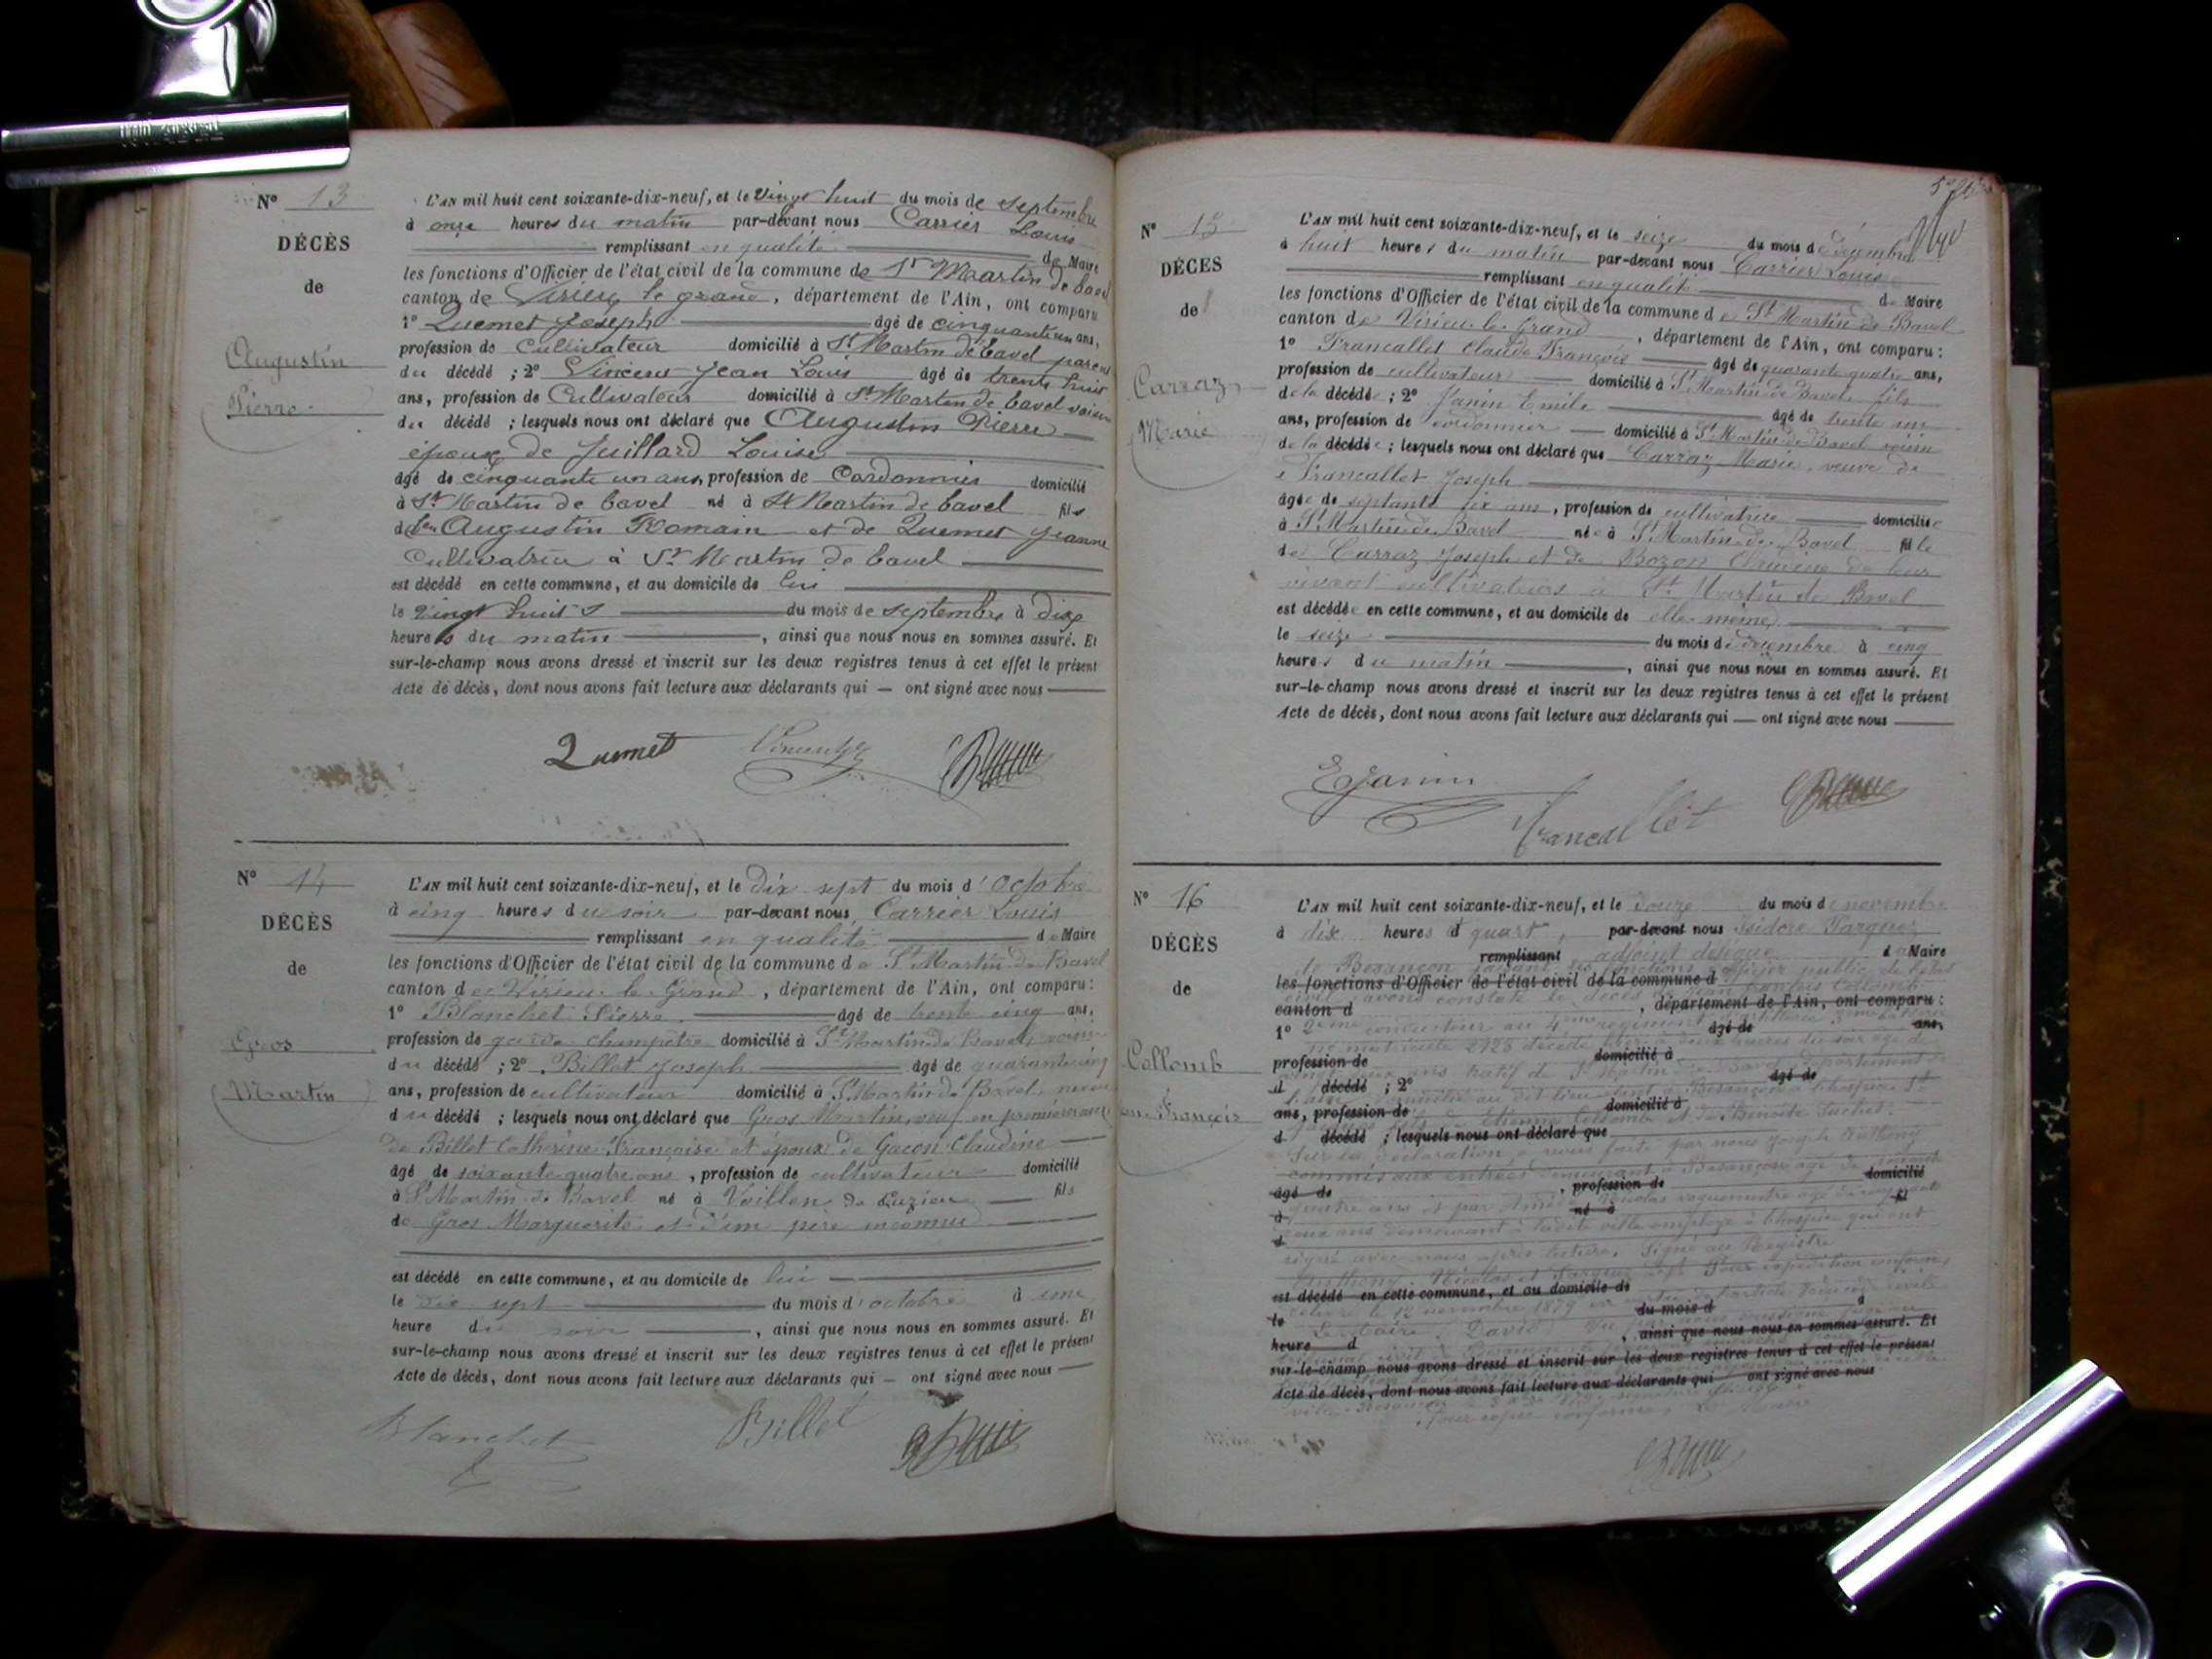 N° 13
DÉCÈS
de
Augustin
Pierre
L'AN mil huit cent soixante-dix-neuf, et le Vingt huit du mois de septembre
à onze heures du matin par-devant nous Carrier Louis
remplissant en qualité de Maire
les fonctions d'Officier de l'état civil de la commune de St Martin de bavel
canton de Virieu le grand, département de l'Ain, ont comparu
1° Quemet Joseph âgé de cinquante un ans,
profession de Cultivateur domicilié à St Martin de bavel parent
du décédé ; 2° Vincent Jean Louis âgé de trente huit
ans, profession de Cultivateur domicilié à St Martin de bavel voisin
du décédé ; lesquels nous ont déclaré que Augustin Pierre
époux de Juillard Louise
âgé de cinquante un ans, profession de Cordonnier domicilié
à St Martin de bavel né à St Martin de bavel fils
de feu Augustin Romain et de Quemet Jeanne
Cultivatrice à St Martin de bavel
est décédé en cette commune, et au domicile de lui
le vingt huit du mois de septembre à dix
heures du matin, ainsi que nous nous en sommes assuré. Et
sur-le-champ nous avons dressé et inscrit sur les deux registres tenus à cet effet le présent
Acte de décès, dont nous avons fait lecture aux déclarants qui — ont signé avec nous
Quemet Vincent
N° 14
DÉCÈS
de
Gros
Martin
L'AN mil huit cent soixante-dix-neuf, et le dix sept du mois d'octobre
à cinq heures du soir par-devant nous Carrier Louis
remplissant en qualité de Maire
les fonctions d'Officier de l'état civil de la commune de St Martin de Bavel
canton de Virieu le Grand, département de l'Ain, ont comparu :
1° Blanchet Pierre âgé de trente cinq ans,
profession de garde champêtre domicilié à St Martin de Bavel voisin
du décédé ; 2° Billet Joseph âgé de quarante cinq
ans, profession de cultivateur domicilié à St Martin de Bavel neveu
du décédé ; lesquels nous ont déclaré que Gros Martin, veuf en premières noces
de Billet Catherine Françoise et époux de Gacon Claudine
âgé de soixante quatre ans, profession de cultivateur domicilié
à St Martin de Bavel né à de Luzieu fils
de Gros Marguerite et d'un père inconnu
est décédé en cette commune, et au domicile de lui
le dix sept du mois d'octobre à une
heure du soir, ainsi que nous nous en sommes assuré. Et
sur-le-champ nous avons dressé et inscrit sur les deux registres tenus à cet effet le présent
Acte de décès, dont nous avons fait lecture aux déclarants qui — ont signé avec nous
Blanchet Billet
N° 15
DÉCÈS
de
Carraz
Marie
L'AN mil huit cent soixante-dix-neuf, et le seize du mois de décembre
à huit heures du matin par-devant nous Carrier Louis
remplissant en qualité de Maire
les fonctions d'Officier de l'état civil de la commune de St Martin de Bavel
canton de Virieu le Grand, département de l'Ain, ont comparu :
1° Francallet Claude François âgé de quarante quatre ans,
profession de cultivateur domicilié à St Martin de Bavel fils
de la décédée ; 2° Janin Emile âgé de trente un
ans, profession de cordonnier domicilié à St Martin de Bavel voisin
de la décédée ; lesquels nous ont déclaré que Carraz Marie, veuve de
Francallet Joseph
âgée de septante six ans, profession de cultivatrice domiciliée
à St Martin de Bavel née à St Martin de Bavel fille
de Carraz Joseph et de Bozon Claudine de leur
vivant cultivateurs à St Martin de Bavel
est décédée en cette commune, et au domicile de elle même
le seize du mois de décembre à cinq
heures du matin, ainsi que nous nous en sommes assuré. Et
sur-le-champ nous avons dressé et inscrit sur les deux registres tenus à cet effet le présent
Acte de décès, dont nous avons fait lecture aux déclarants qui — ont signé avec nous
EJanin
Francallet
N° 16
DÉCÈS
de
Collomb
François
L'AN mil huit cent soixante-dix-neuf, et le douze du mois de novembre
à dix heures et quart, par-devant nous Isidore
remplissant adjoint délégué d Maire
de Besançon faisant les fonctions d'officier public de l'état
les fonctions d'Officier de l'état civil de la commune d
civil avons constaté le décès de
canton d , département de l'Ain, ont comparu :
1° 2ème conducteur au 4ème régiment d'artillerie âgé de ans,
profession de domicilié à
d décédé ; 2° âgé de
ans, profession de domicilié à
fils de Etienne Collomb et de Benoite
d décédé ; lesquels nous ont déclaré que
Sur la déclaration à nous faite par nous Joseph Anthony
commis aux entrées demeurant à Besançon, âgé de
âgé de , profession de domicilié
à né à fil
d
signé avec nous après lecture. Signé au Registre
Anthony, Nicolas et Pour expédition conforme
est décédé en cette commune, et au domicile de
le 14 novembre 1879 du mois d à
Le Maire David
heure d , ainsi que nous nous en sommes assuré. Et
sur-le-champ nous avons dressé et inscrit sur les deux registres tenus à cet effet le présent
Acte de décès, dont nous avons fait lecture aux déclarants qui ont signé avec nous
Pour copie conforme, Le Maire